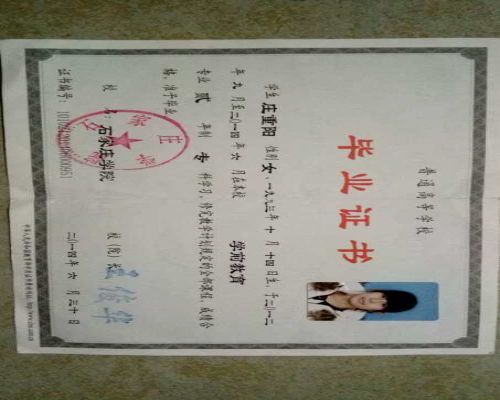 普通高等学校
毕业证书
学生 庄重阳 性别 女，一九九三年 十 月 十四日生，于二〇一二
年 九 月至二〇一四年 六 月在本校 学前教育
专业 贰 年制 专 科学习，修完教学计划规定的全部课程，成绩合
格，准予毕业
校 名：石家庄学院 校（院）长：
证书编号： 二〇一四年 六 月 三十日